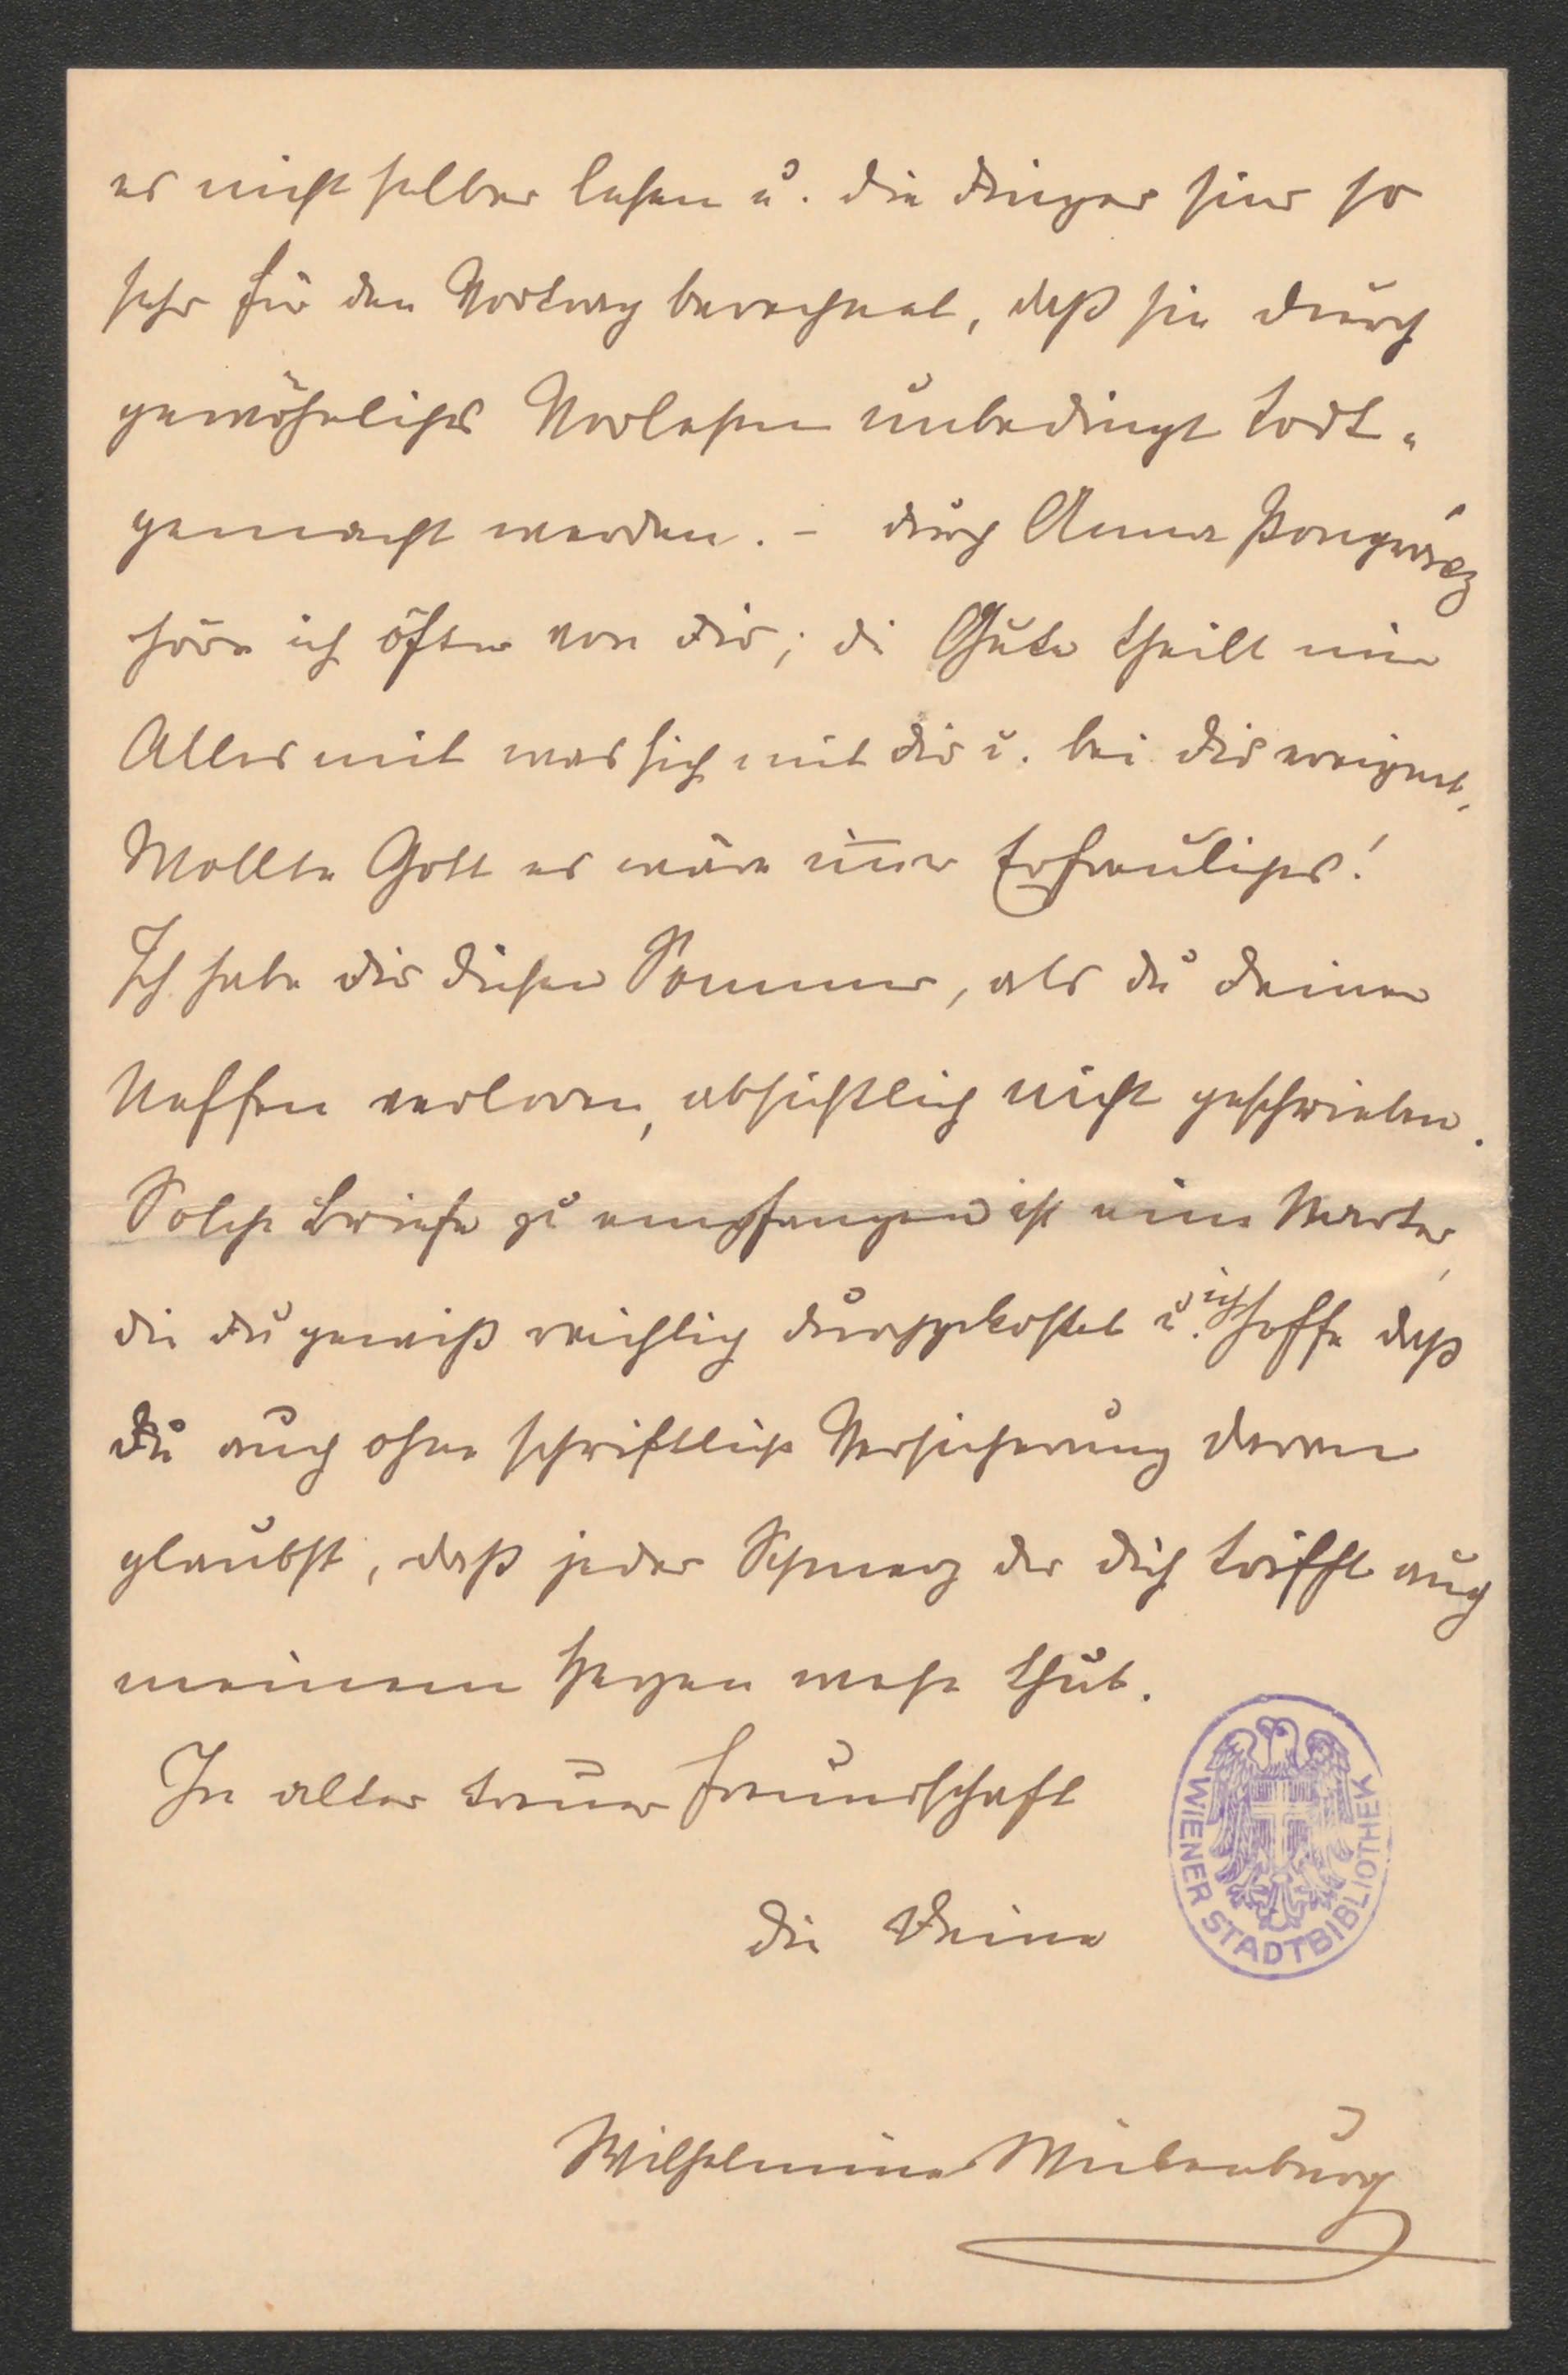 es nicht selber lesen u. die Dinger sind so
sehr für den Vortrag berechnet, daß sie durch
gewöhnliches Vorlesen unbedingt todt-
gemacht werden. – durch Anna Pongrácz
höre ich öfter von Dir; die Gute theilt mir
Alles mit was sich mit dir u. bei Dir ereignet.
Wollte Gott es wäre im̅er Erfreuliches!
Ich habe Dir diesen Sommer, als du Deinen
Neffen verloren, absichtlich nicht geschrieben.
Solche Briefe zu empfangen ist eine Marter,
die Du gewiß reichlich durchgekostet u. ich hoffe daß
Du auch ohne schriftliche Versicherung daran
glaubst, daß jeder Schmerz der dich trifft auch
meinem Herzen wehe thut.
In alter treuer Freundschaft
die Deine
Wilhelmine Mitenburg
WIENER STADTBIBLIOTHEK